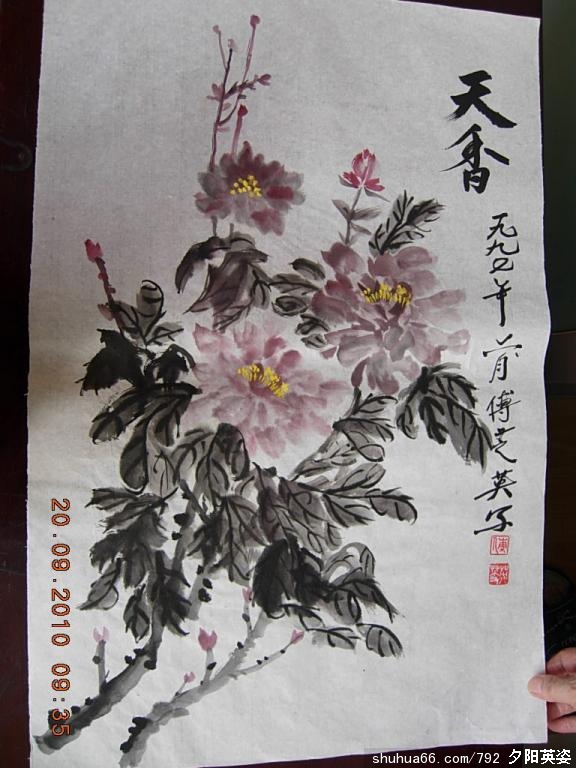 天香
一九九七年 月傅克英写
20.09.2010 09:35
shuhua66.com/792 夕阳英姿